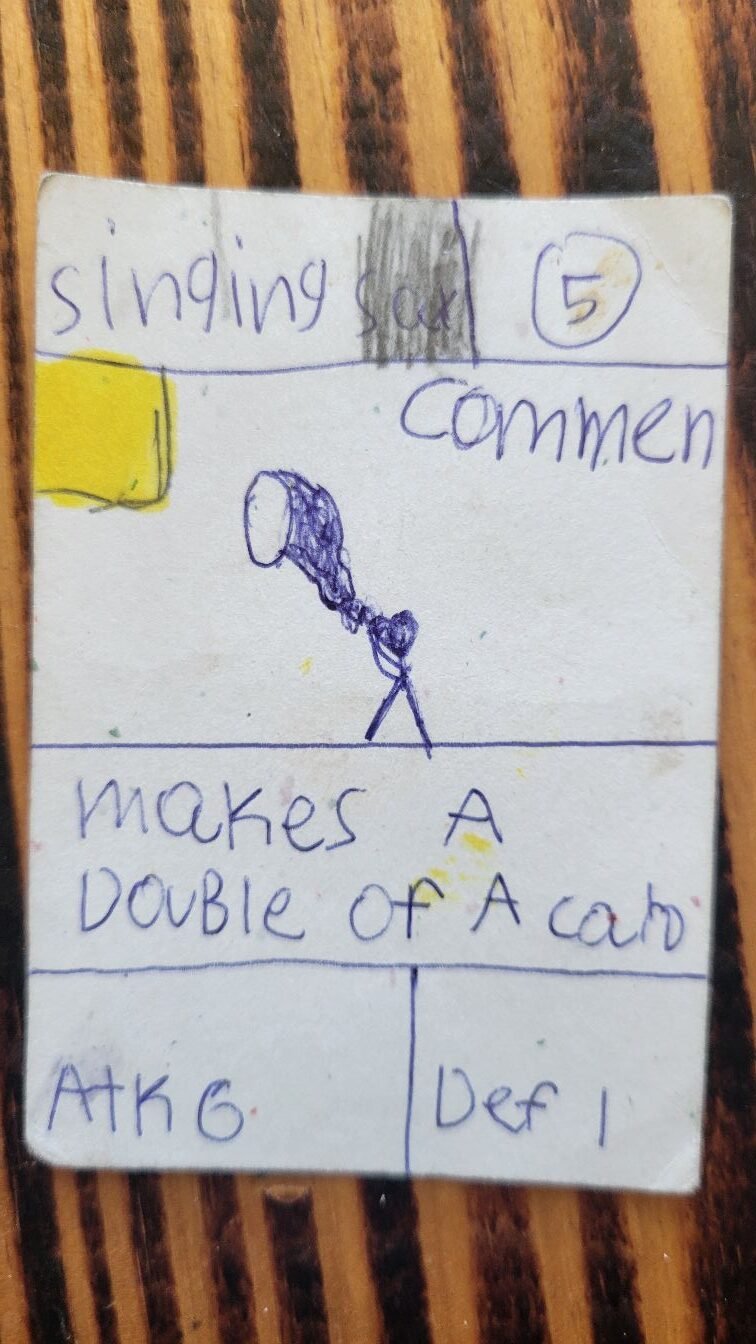 singing sax 5
commen
makes A
DOUBLE of A card
AtK 6 Def 1